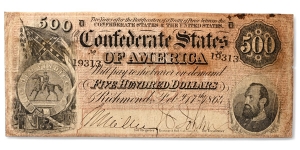 Two Years after the Ratification of a Treaty of Peace between the
CONFEDERATE STATES & THE UNITED STATES
500 Confederate States 500
19313 OF AMERICA 19313
Will pay to the bearer on demand
FIVE HUNDRED DOLLARS
Richmond Feb 17th 1864